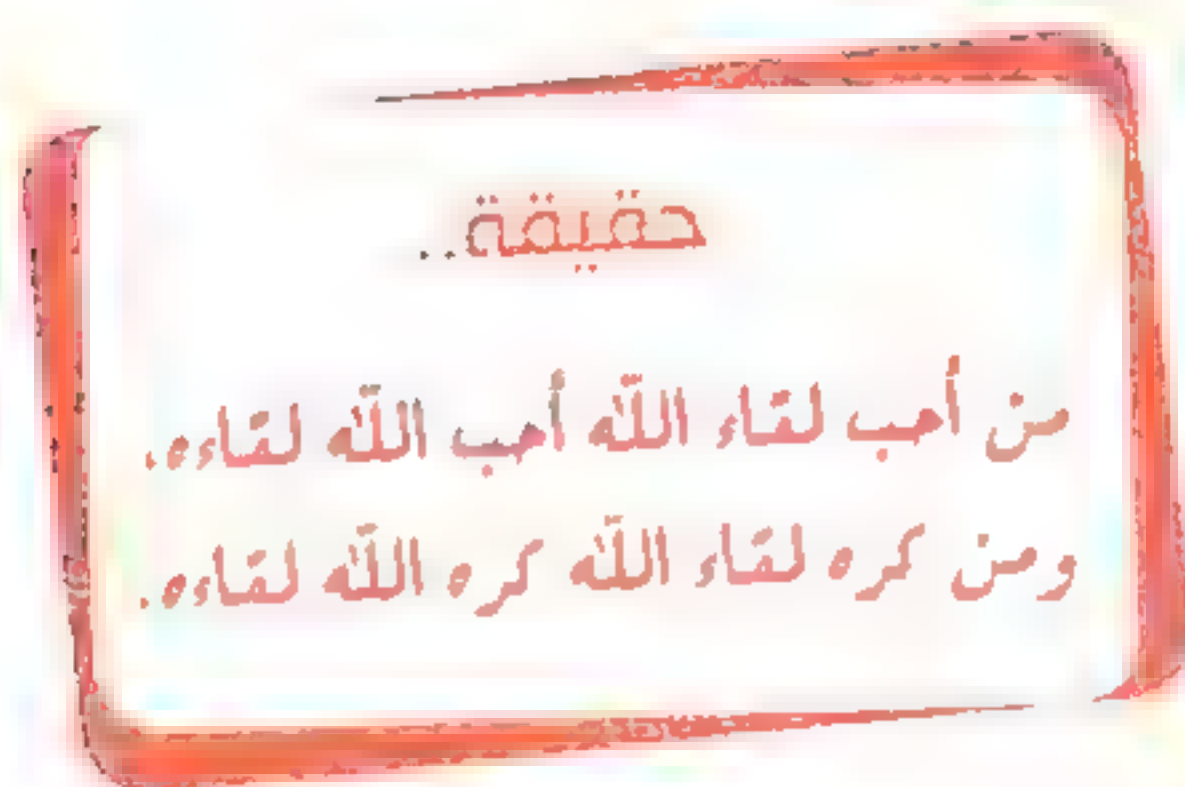 حقيقة..
من أحب لقاء اللّٰه أحب اللّٰه لقاءه.
ومن كره لقاء اللّٰه كره اللّٰه لقاءه.